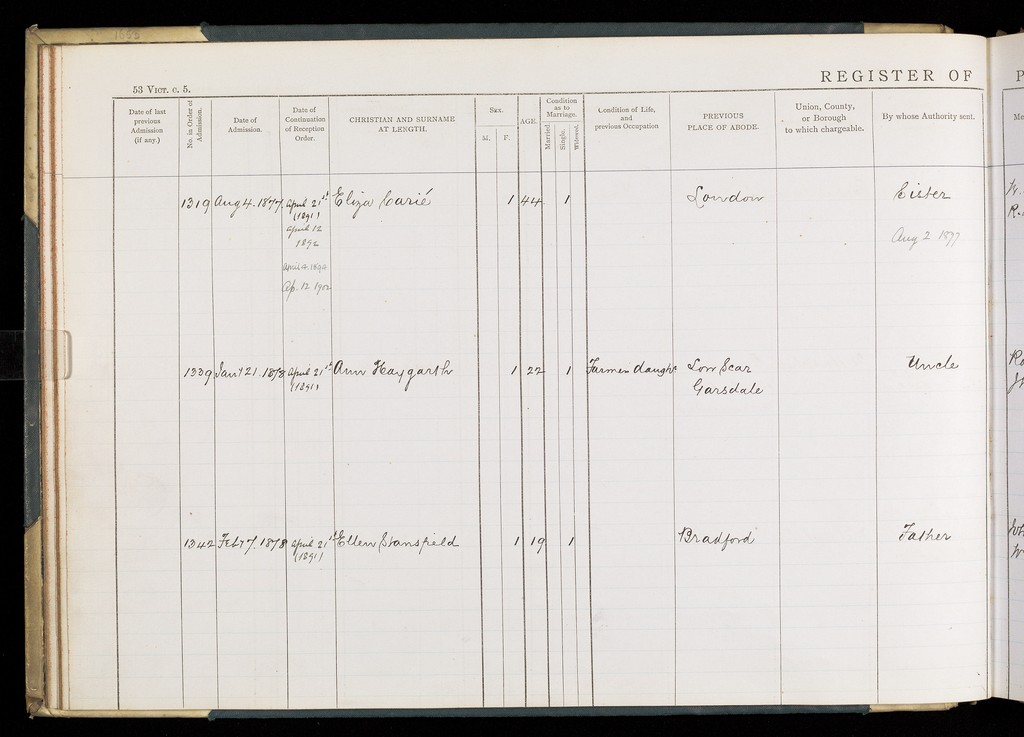 1653
53 VICT. C. 5.
REGISTER OF
P
Date of last previous Admission (if any.)
No. in Order of Admission.
Date of Admission.
Date of Continuation of Reception Order.
CHRISTIAN AND SURNAME AT LENGTH.
Sex.
M.
F.
AGE.
Condition as to Marriage.
Married
Single.
Widowed.
Condition of Life, and previous Occupation
PREVIOUS PLACE OF ABODE.
Union, County, or Borough to which chargeable.
By whose Authority sent.
Me
1319 Aug 4. 1877 April 21st Eliza Carié 1 44 1 London Sister
(1891)
April 12
1892
Aug 2 1877
April 4. 1894
Ap. 12. 1902
1339 Jany 21. 1878 April 21st Ann Haygarth 1 22 1 Farmer daught Low Scar Uncle
(1891)
Garsdale
1342 Feby 7. 1878 April 21st Ellen Stansfield 1 19 1 Bradford Father
(1891)